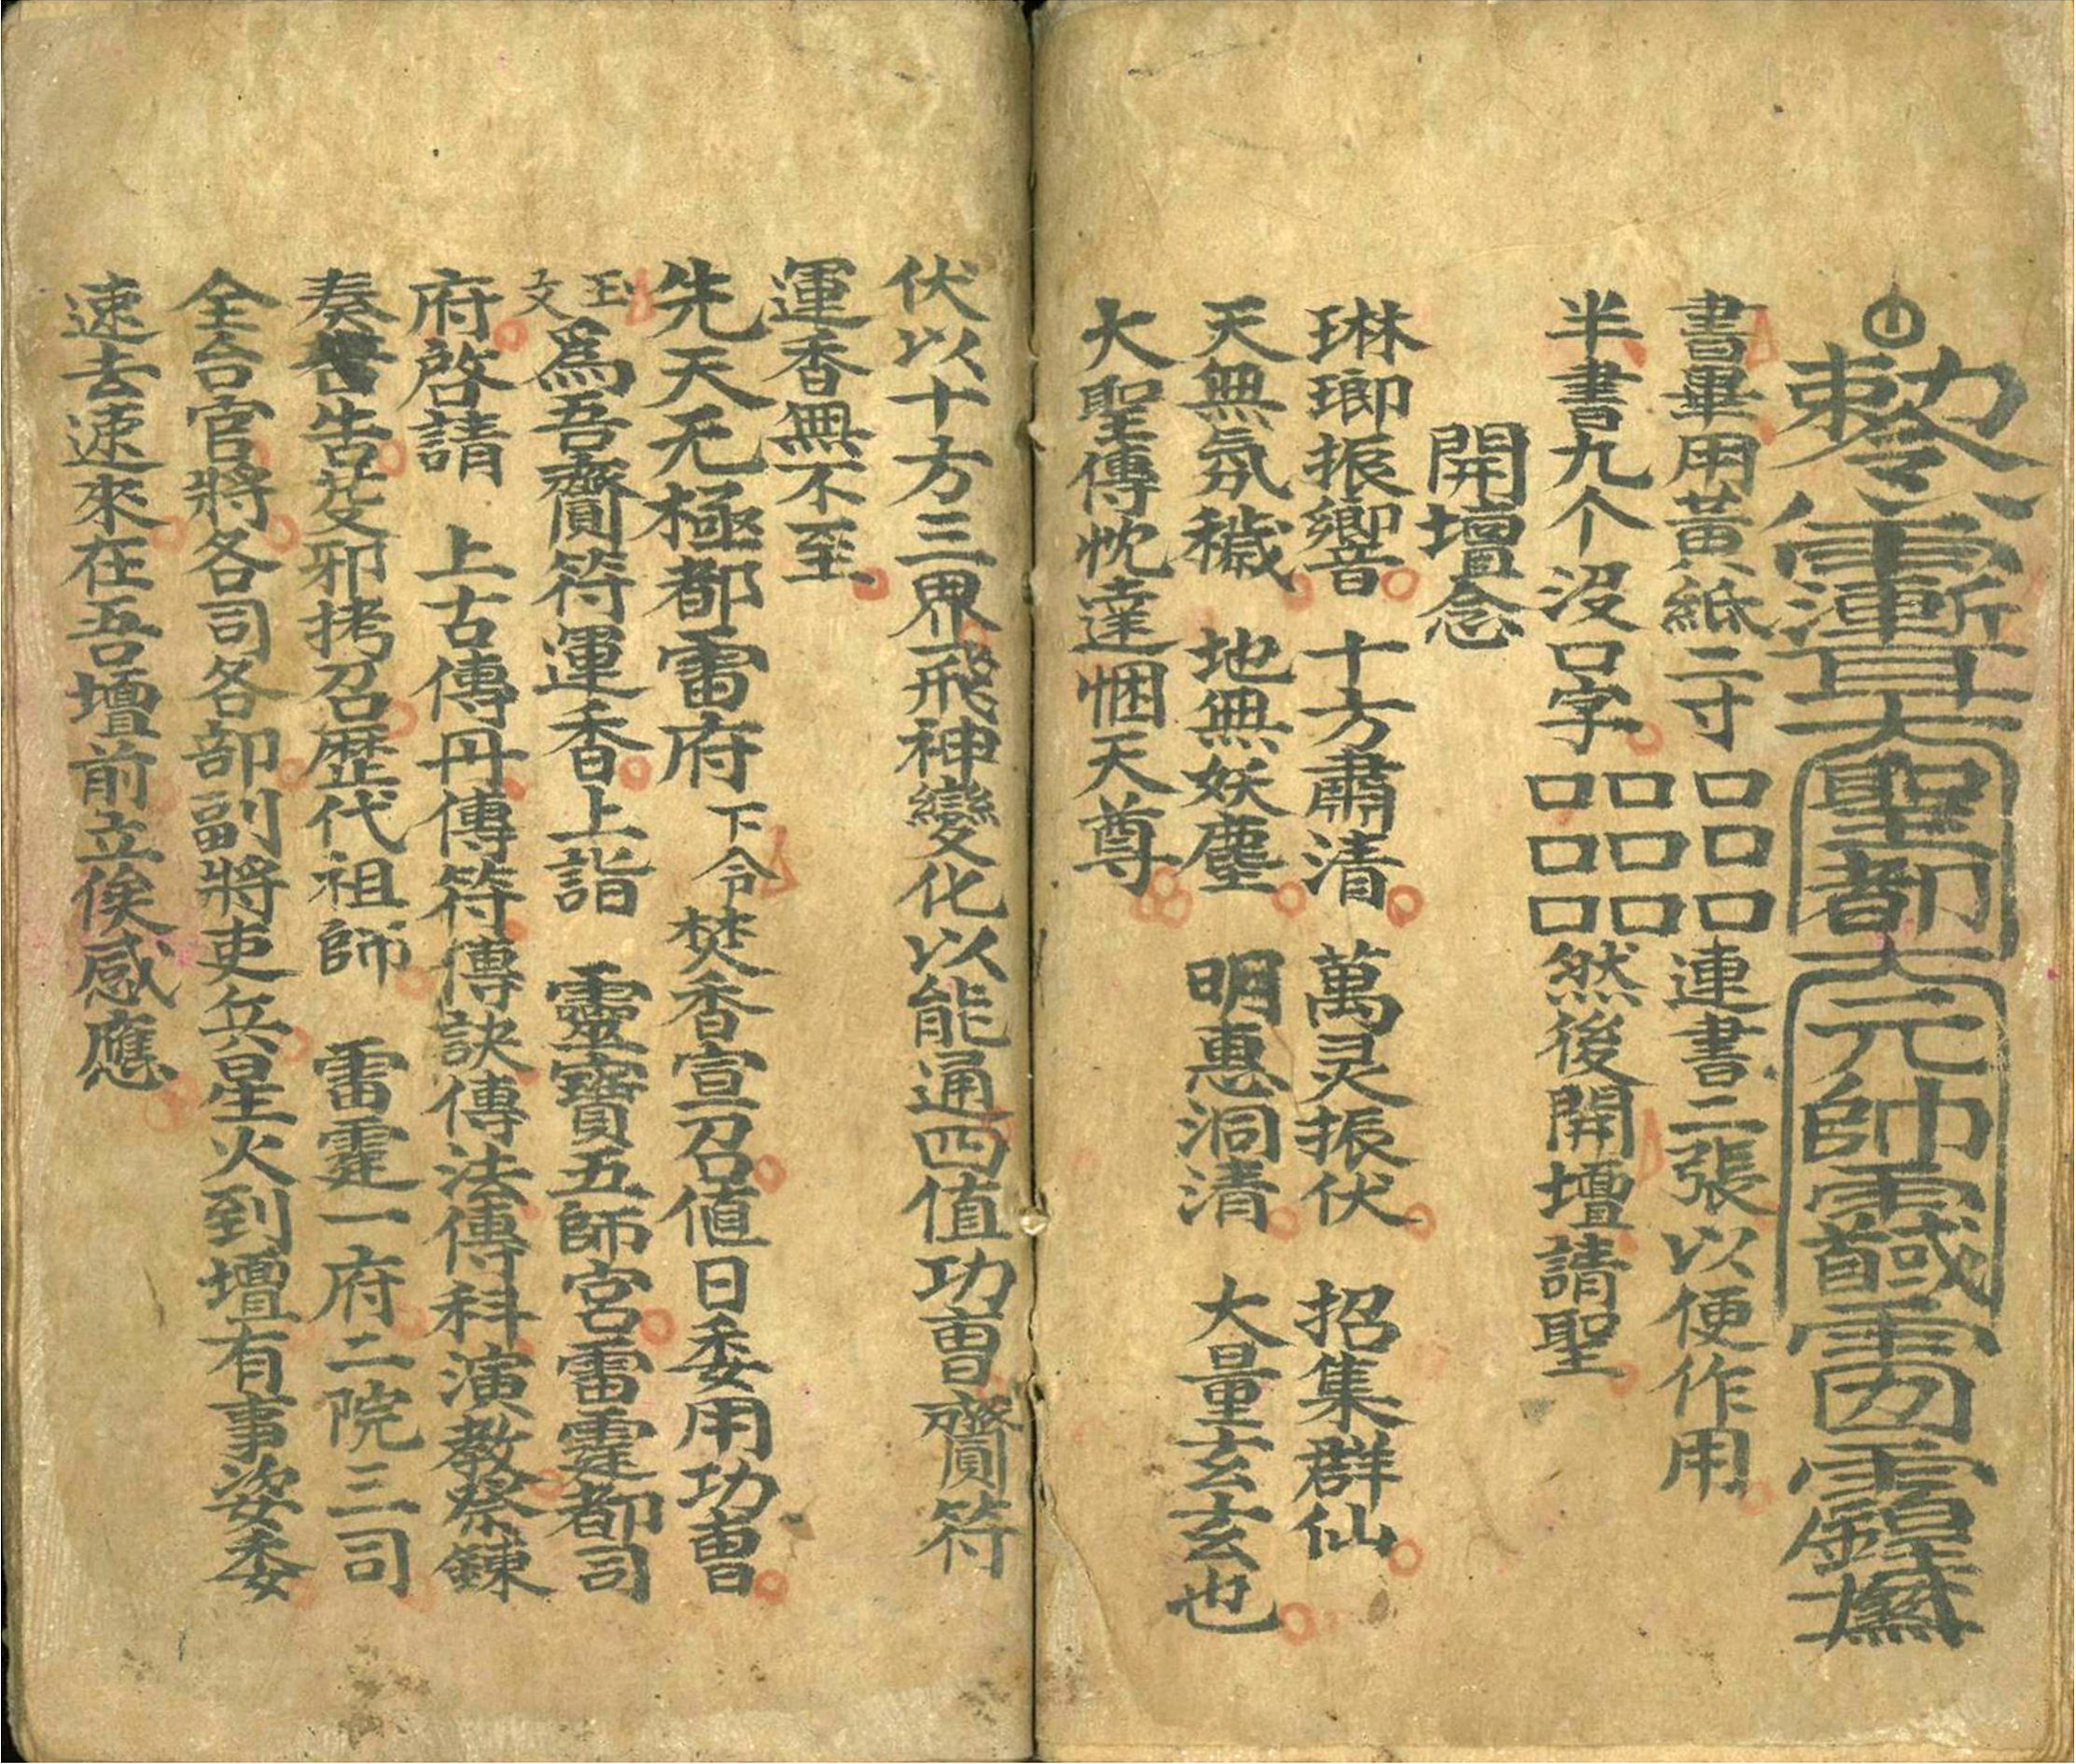 敕令 大聖都大元帥
書畢用黃紙二寸口口口連書二張以便作用
半書九个沒口字口口口口口口然後開壇請聖
開壇念
琳瑯振響 十方肅清 萬灵振伏 招集群仙
天無氛穢 地無妖塵 明惠洞清 大量玄玄也
大聖傳忱達悃天尊
伏以十方三界飛神變化以能通四值功曹齎符
運香無不至
先天无極都雷府下令焚香宣召値日委用功曹
玉文爲吾齎符運香上詣 靈寶五師宮雷霆都司
府啓請 上古傳丹傳符傳訣傳法傳科演教祭錬
奏告告芟邪拷召歷代祖師 雷霆一府二院三司
全合官將各司各部副將吏兵星火到壇有事姿委
速去速來在吾壇前立俟感應